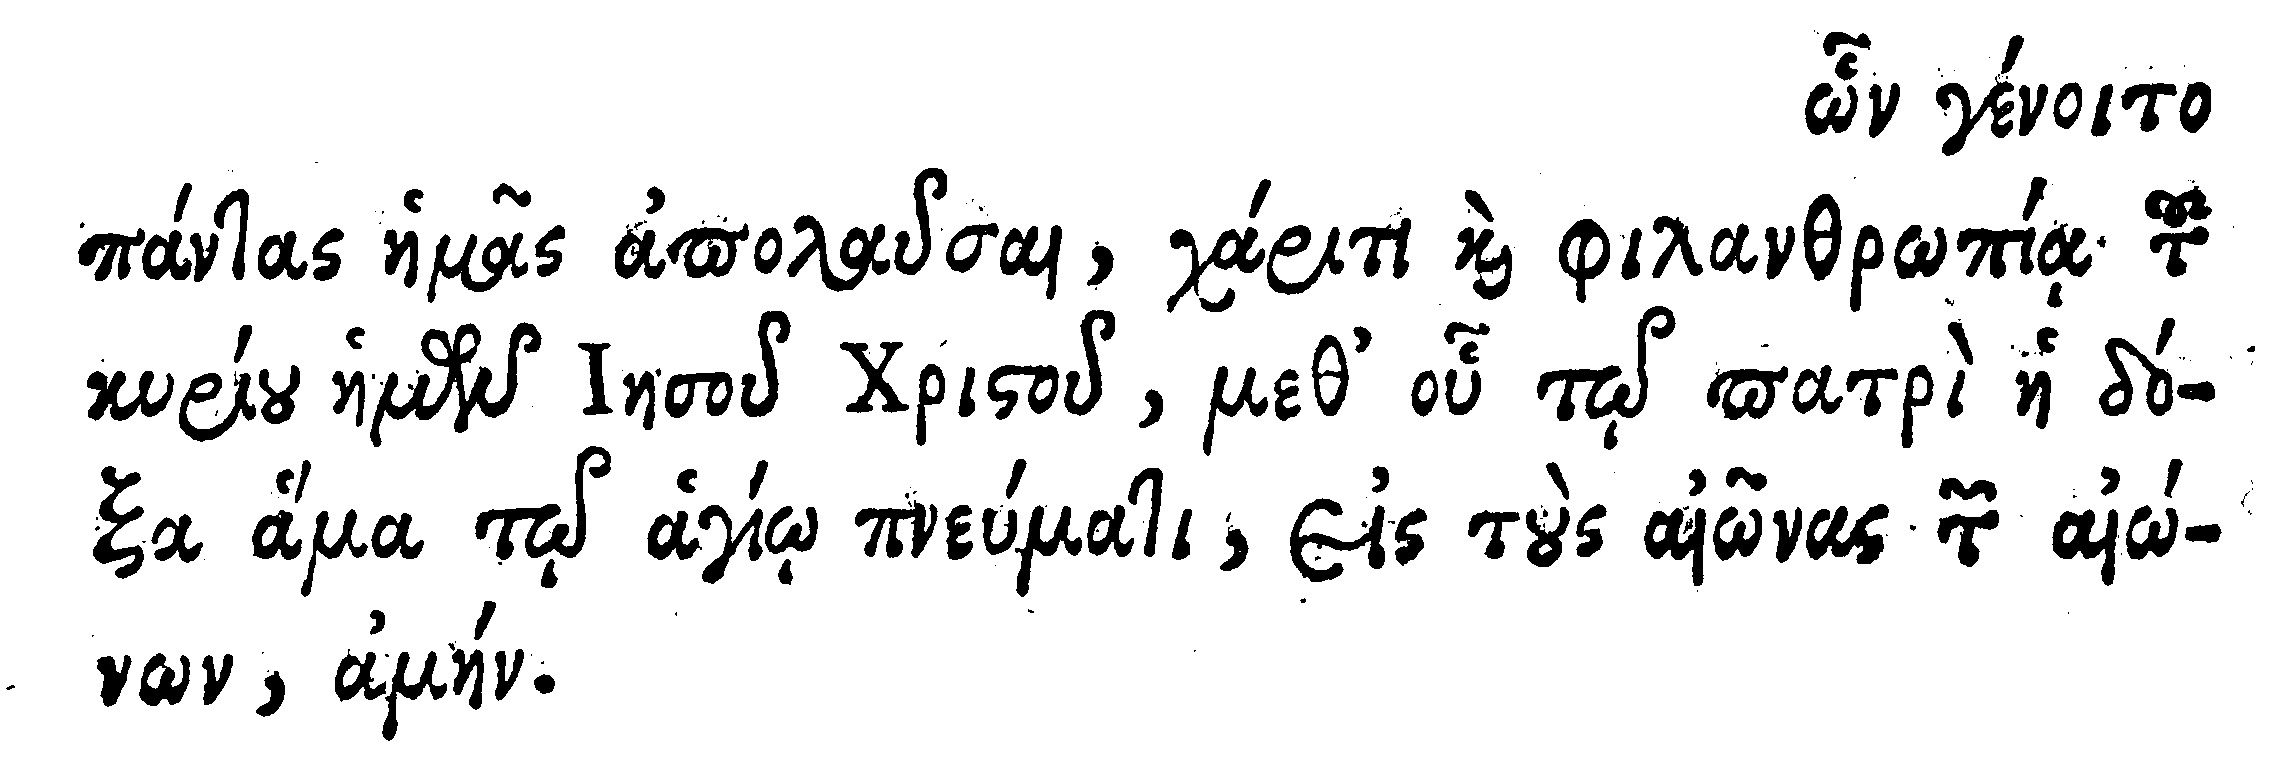 ὧν γένοιτο
πάντας ἡμᾶς ἀπολαῦσαι, χάριτι καὶ φιλανθρωπίᾳ τοῦ
κυρίου ἡμῶν Ἰησοῦ Χριστοῦ, μεθ’ οὗ τῷ πατρὶ ἡ δό-
ξα ἅμα τῷ ἁγίῳ πνεύματι, εἰς τοὺς αἰῶνας τῶν αἰώ-
νων, ἀμήν.